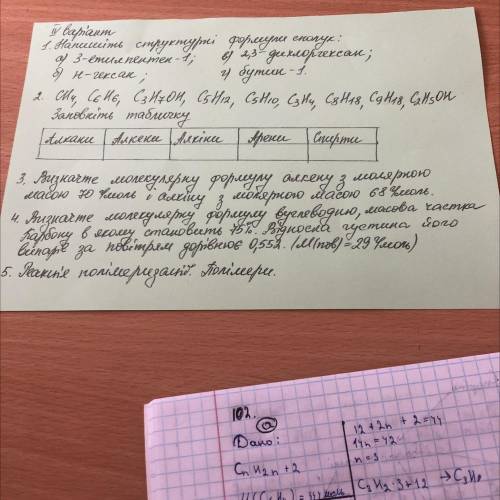 IV варіант
1. Напишіть структурні формули сполук:
а) 3-етилпентен-1; в) 2,3-дихлоргексан;
б) н-гексан; г) бутин-1.
2. CH4, C6H6, C3H7OH, C5H12, C5H10, C3H4, C8H18, C9H18, C2H5OH
Заповніть табличку
Алкани Алкени Алкіни Арени Спирти
3. Визначте молекулярну формулу алкену з молярною
масою 70 г/моль і алкіну з молярною масою 68 г/моль.
4. Визначте молекулярну формулу вуглеводню, масова частка
Карбону в якому становить 75%. Відносна густина його
випарів за повітрям дорівнює 0,552. (M(пов)=29 г/моль)
5. Реакція полімеризації. Полімери.
102.
а
Дано:
CnH2n+2
12+2n+2=44
14n=42
n=3
C3H2·3+12 → C3H8